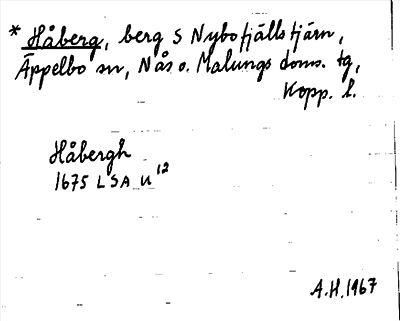 * Håberg, berg S Nybofjällstjärn,
Äppelbo sn, Nås o. Malungs doms. tg,
Kopp. l.
Håbergh
1675 LSA U 12
A.H. 1967